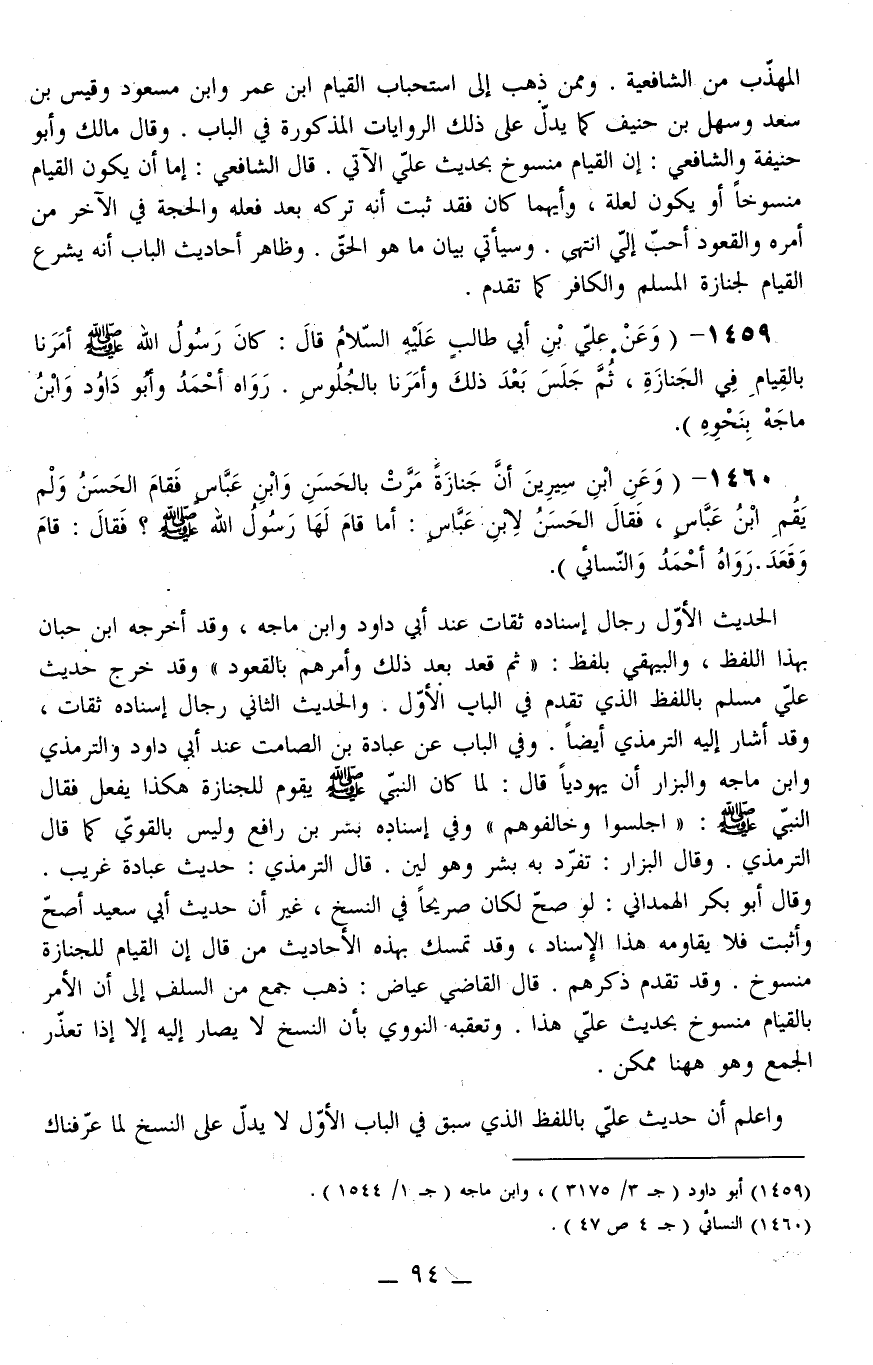 المهذّب من الشافعية . وممن ذهب إلى استحباب القيام ابن عمر وابن مسعود وقيس بن
سعد وسهل بن حنيف كما يدلّ على ذلك الروايات المذكورة في الباب . وقال مالك وأبو
حنيفة والشافعي : إن القيام منسوخ بحديث عليّ الآتي . قال الشافعي : إما أن يكون القيام
منسوخاً أو يكون لعلة ، وأيهما كان فقد ثبت أنه تركه بعد فعله والحجة في الآخر من
أمره والقعود أحبّ إليّ انتهى . وسيأتي بيان ما هو الحقّ . وظاهر أحاديث الباب أنه يشرع
القيام لجنازة المسلم والكافر كما تقدم .
١٤٥٩- ( وَعَنْ عليّ بْنِ أبي طالبٍ عَلَيْهِ السّلامُ قالَ : كانَ رَسُولُ الله ﷺ أمَرَنا
بالقِيامِ فِي الجَنازَةِ ، ثُمَّ جَلَسَ بَعْدَ ذلكَ وأمَرَنا بالجُلُوسِ . رَوَاه أحْمَدُ وأبُو دَاوُد وَابْنُ
ماجَهْ بِنَحْوِهِ ).
١٤٦٠- ( وَعَنِ ابْنِ سِيرِينَ أنَّ جَنازَةً مَرَّتْ بالحَسَنِ وَابْنِ عَبَّاسٍ فَقامَ الحَسَنُ وَلْم
يَقُمِ ابْنُ عَبَّاسٍ ، فَقالَ الحَسَنُ لِابنِ عَبَّاسٍ : أما قامَ لَهَا رَسُولُ الله ﷺ ؟ فَقالَ : قامَ
وَقَعَدَ . رَوَاهُ أحْمَدُ وَالنّسائي ).
الحديث الأوّل رجال إسناده ثقات عند أبي داود وابن ماجه ، وقد أخرجه ابن حبان
بهذا اللفظ ، والبيهقي بلفظ : « ثم قعد بعد ذلك وأمرهم بالقعود » وقد خرج حديث
عليّ مسلم باللفظ الذي تقدم في الباب الأوّل . والحديث الثاني رجال إسناده ثقات ،
وقد أشار إليه الترمذي أيضاً . وفي الباب عن عبادة بن الصامت عند أبي داود والترمذي
وابن ماجه والبزار أن يهودياً قال : لما كان النبيّ ﷺ يقوم للجنازة هكذا يفعل فقال
النبيّ ﷺ : « اجلسوا وخالفوهم » وفي إسناده بشر بن رافع وليس بالقويّ كما قال
الترمذي . وقال البزار : تفرّد به بشر وهو لين . قال الترمذي : حديث عبادة غريب .
وقال أبو بكر الهمداني : لو صحّ لكان صريحاً في النسخ ، غير أن حديث أبي سعيد أصحّ
وأثبت فلا يقاومه هذا الإِسناد ، وقد تمسك بهذه الأحاديث من قال إن القيام للجنازة
منسوخ . وقد تقدم ذكرهم . قال القاضي عياض : ذهب جمع من السلف إلى أن الأمر
بالقيام منسوخ بحديث عليّ هذا . وتعقبه النووي بأن النسخ لا يصار إليه إلا إذا تعذّر
الجمع وهو ههنا ممكن .
واعلم أن حديث عليّ باللفظ الذي سبق في الباب الأوّل لا يدلّ على النسخ لما عرّفناك
(١٤٥٩) أبو داود ( جـ ٣/ ٣١٧٥ ) ، وابن ماجه ( جـ ١/ ١٥٤٤ ) .
(١٤٦٠) النسائي ( جـ ٤ ص ٤٧ ) .
ــ ٩٤ ــ